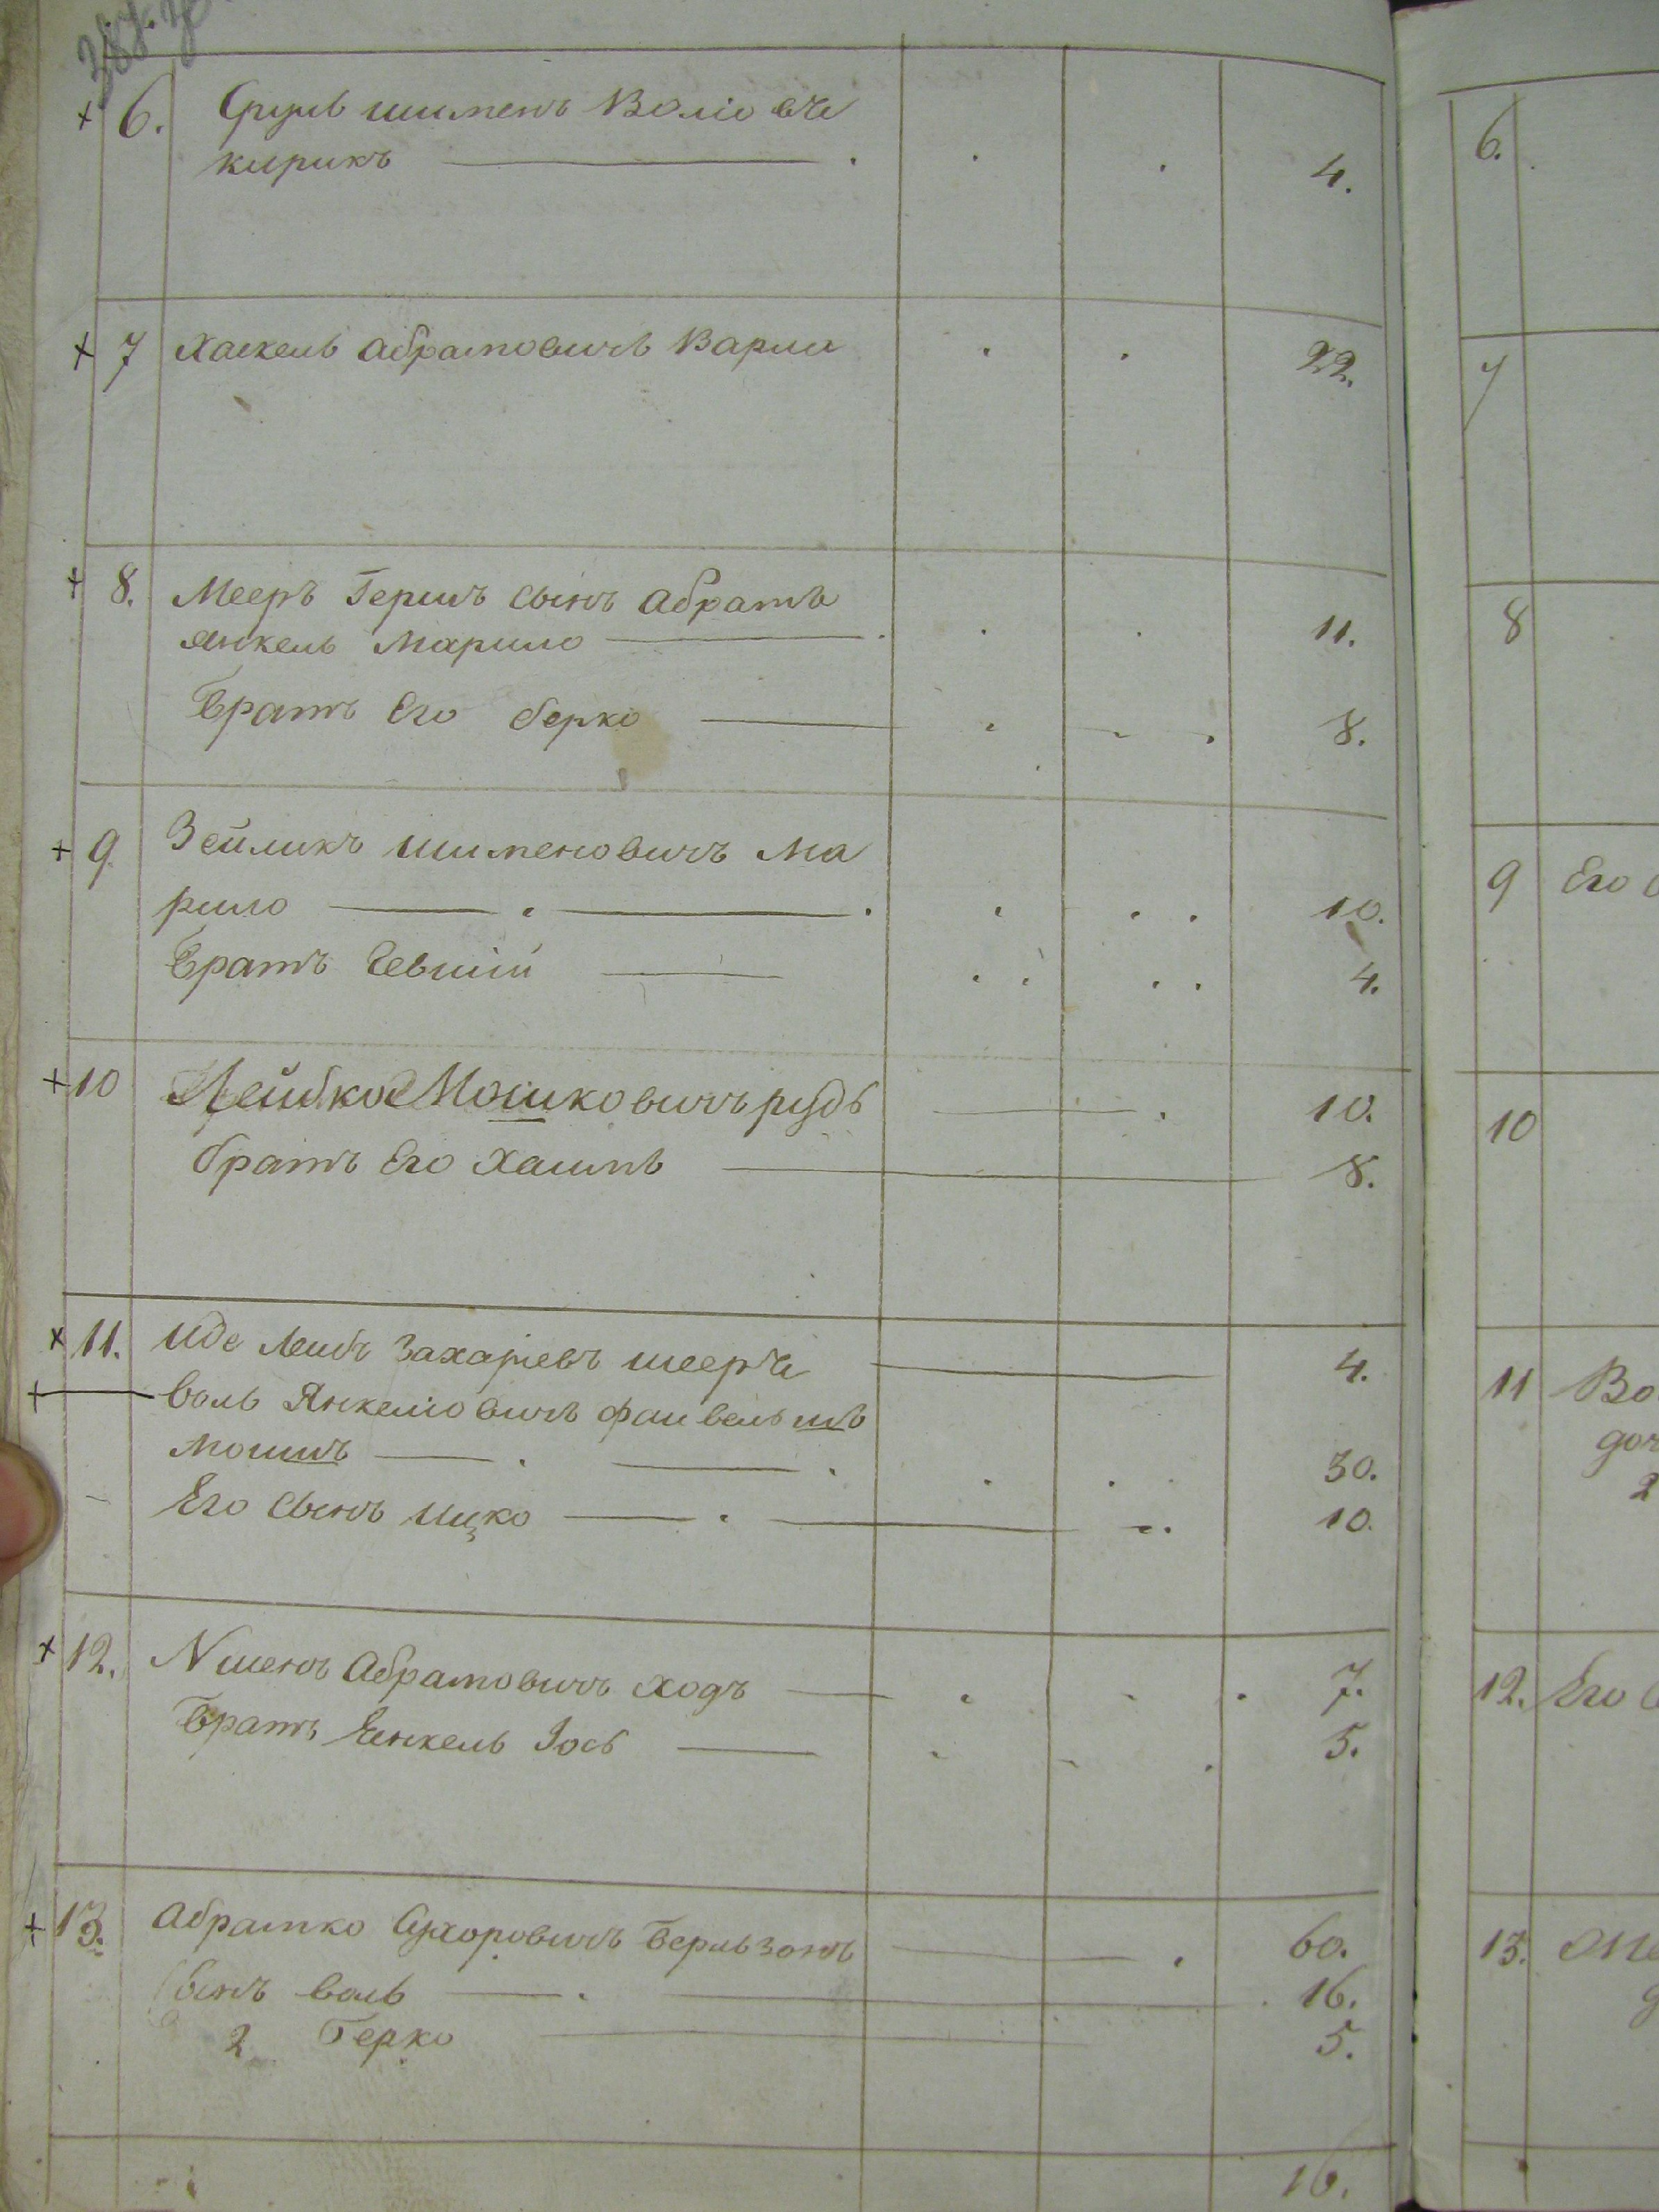 6. Сруль шименъ Волiо вче
кирикъ 4.
7 Хаскель абрамовичъ Варши 22.
8. Мееръ Гершъ сынъ абрамъ
янкель Марило 11.
братъ Его берко 8.
9 Зейликъ шименовичъ Ма
рило 10.
братъ Евший 4.
10 Лейбко Мошковичъ рудь 10.
братъ Его Хаимъ 8.
11. Иде Леибъ Захарiевъ 4.
воль Янкелiовичъ
мошшъ 30.
Его сынъ ицко 10.
12. Абрамовичъ ходъ 7.
братъ Енкель Іось 5.
13. абрамко Сухоровичъ берльзонъ 60.
Сынъ воль 16.
2 берко 5.
16.
6.
7
8
9 Его
10
11 Во
2
12. Его
13.